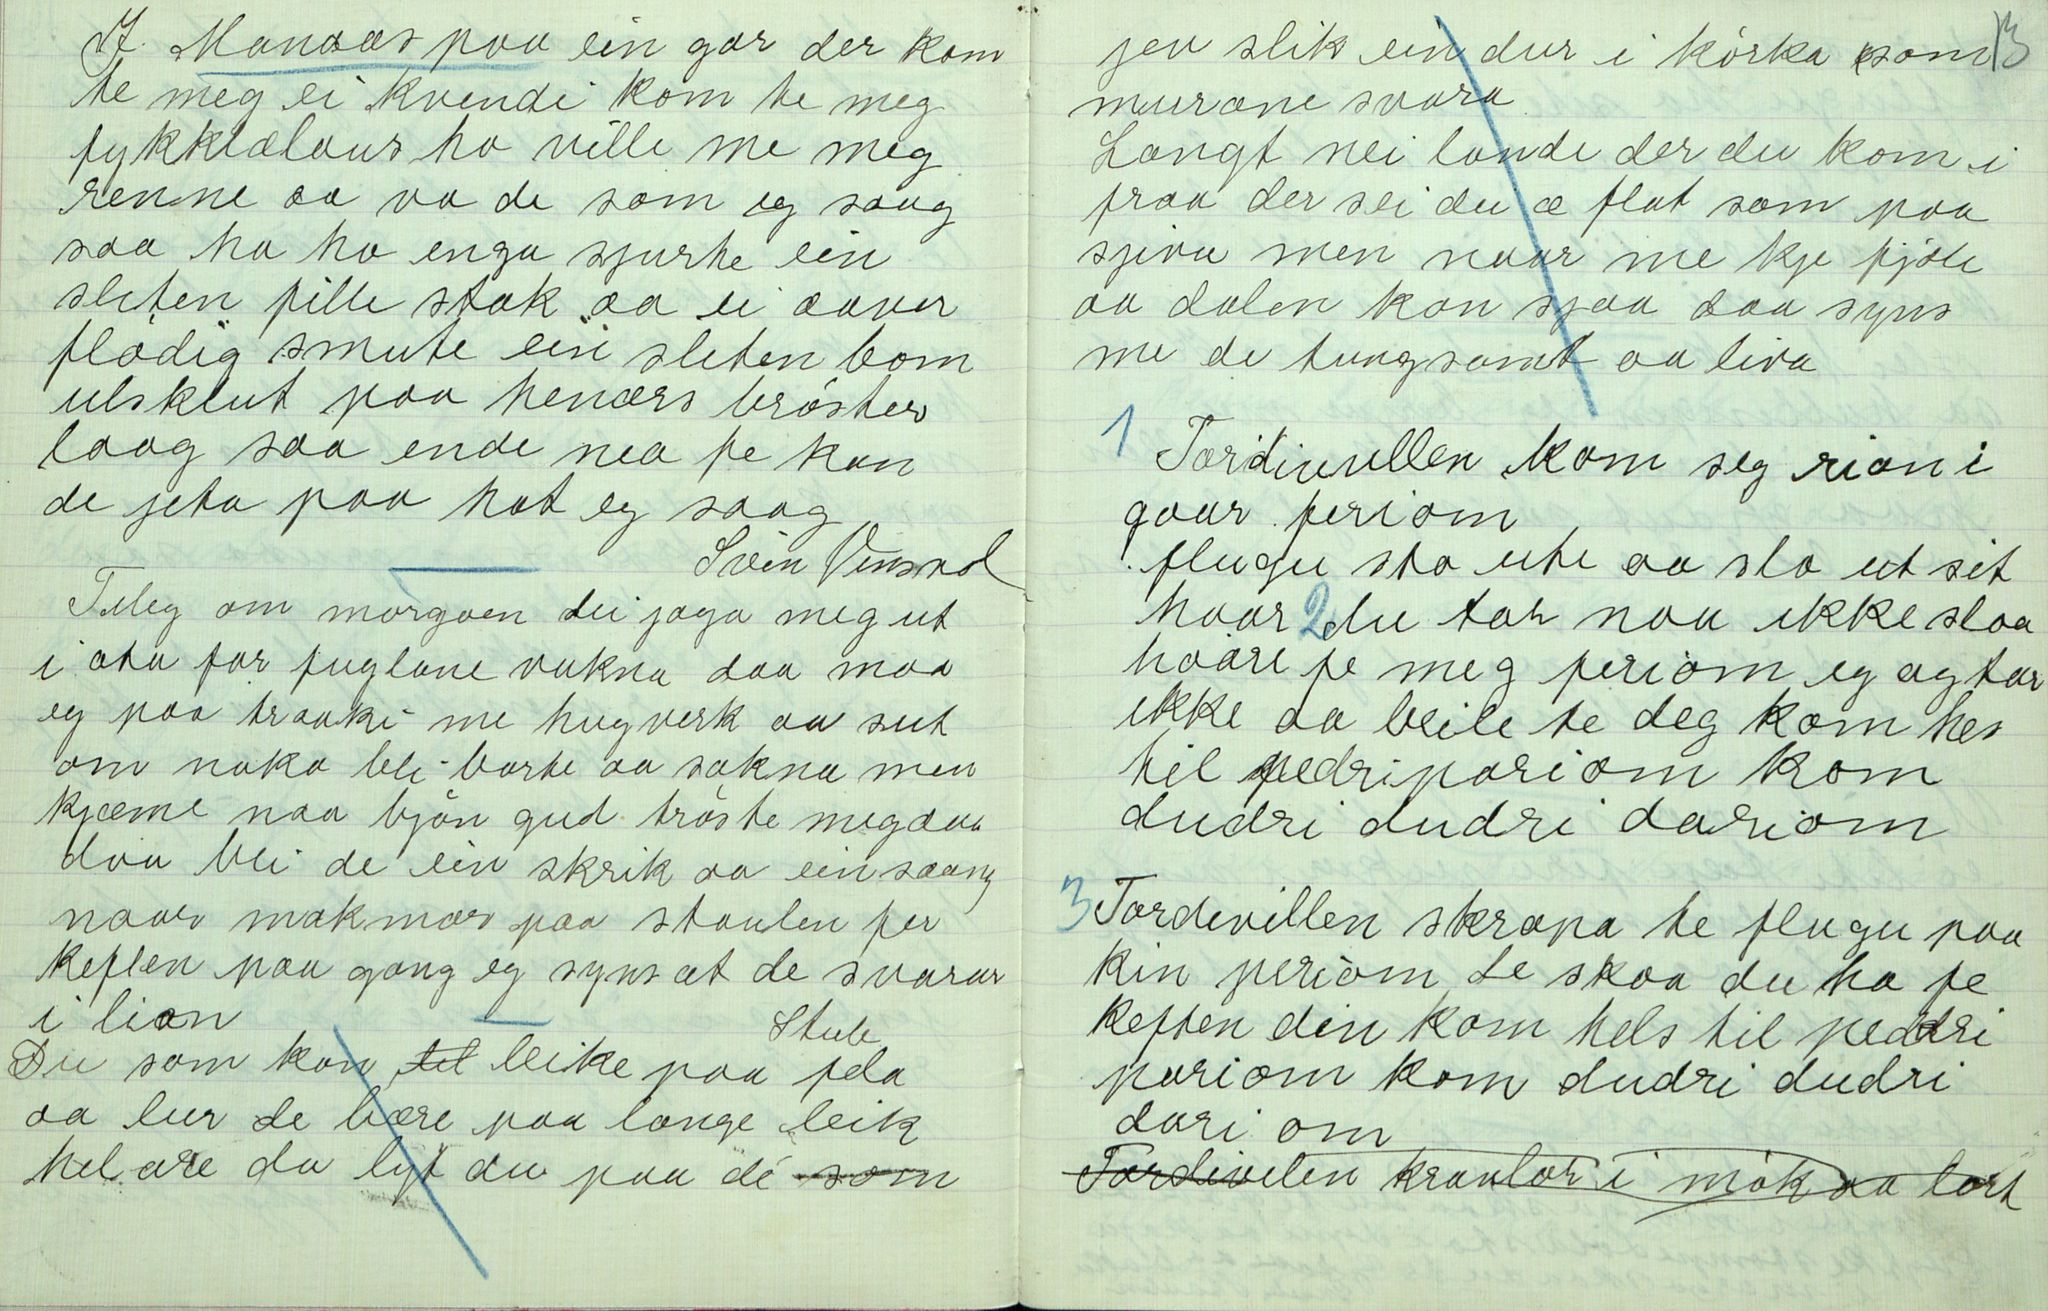 I Manaas paa ein gar der kom
te meg ei kvende kom te meg
fykktelaus ho ville me meg
renne aa va de som eg saag
saa ha ho enga sjurte ein
sleten fille stak aa ei aaver
flødig smute ein sleten bom
ulsklut paa henærs brøster
laag saa ende nea fe kan
de jeta paa hot eg saag
Svein Vinsval
Tileg om morgoen dei jaga meg ut
i ota før fuglane vakna daa maa
eg paa traaki me hugverk aa sut
om noko bli borte aa sakna men
kjæme naa bjøn gud trøste meg daa
daa bli de ein skrik aa ein saang
naar makmor paa staulen fer
keften paa gang eg syns at de svarar
i lion
Stub
Du som kan til leike paa fela
aa lur de bære paa lange leik
hel are da lyt du paa de som
13
jev slik ein dur i kørka som
murane svara
Langt nei lande der du kom i
fraa der sei du æ flat som paa
sjiva men naar me kje fjøle
aa dalen kan sjaa daa syns
me de tungsamt aa liva
1 Tordivellen kom seg rian i
gaar feriom
flugu sto ute aa slo ut sit
haar 2 du tar naa ikke slaa
haare fe meg feriom eg agtar
ikke aa beile te deg kom hes
til pedripariom kom
dudri dudri dariom
3 Tordivillen skrapa te flugu paa
kin periom de skaa du ha fe
keften din kom hels til peddri
pariom kom dudri dudri
dari om
Tordivelen kravlar i møk aa lort